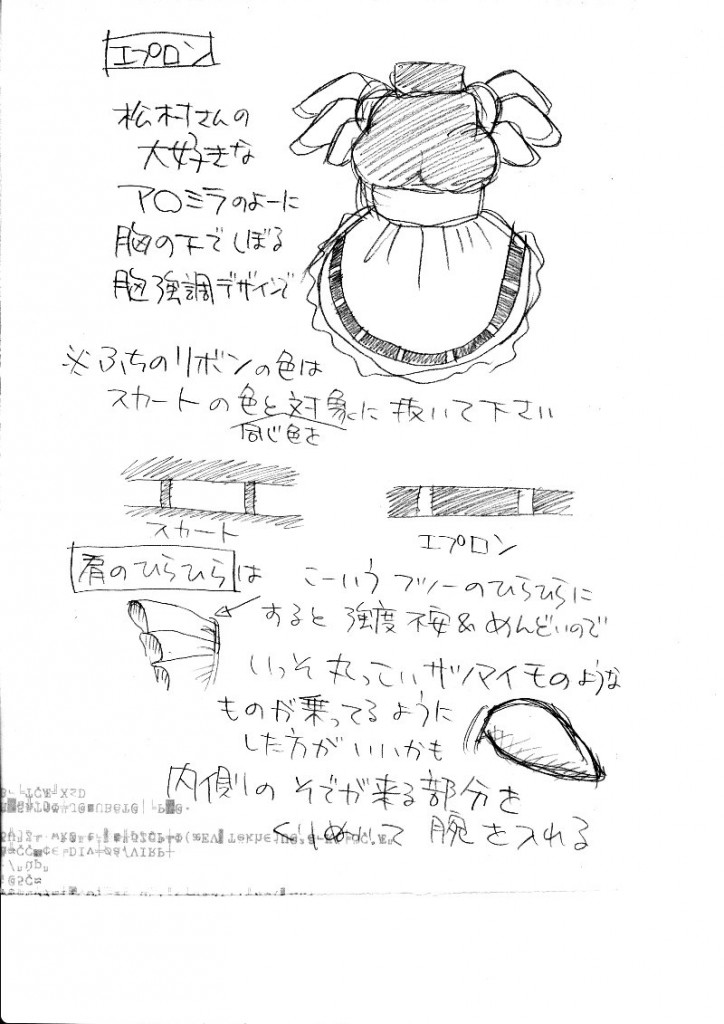 エプロン
松村さんの
大好きな
ア〇ミラのよーに
胸の下でしぼる
胸強調デザインで
※ふちのリボンの色は
スカートの色と対象に抜いて下さい
同じ色を
スカート
エプロン
肩のひらひらは
こーいうフツーのひらひらに
すると強度不安&めんどいので
いっそ丸っこいサツマイモのような
ものが乗ってるように
した方がいいかも
内側のそでが来る部分を
くりぬいて腕を入れる